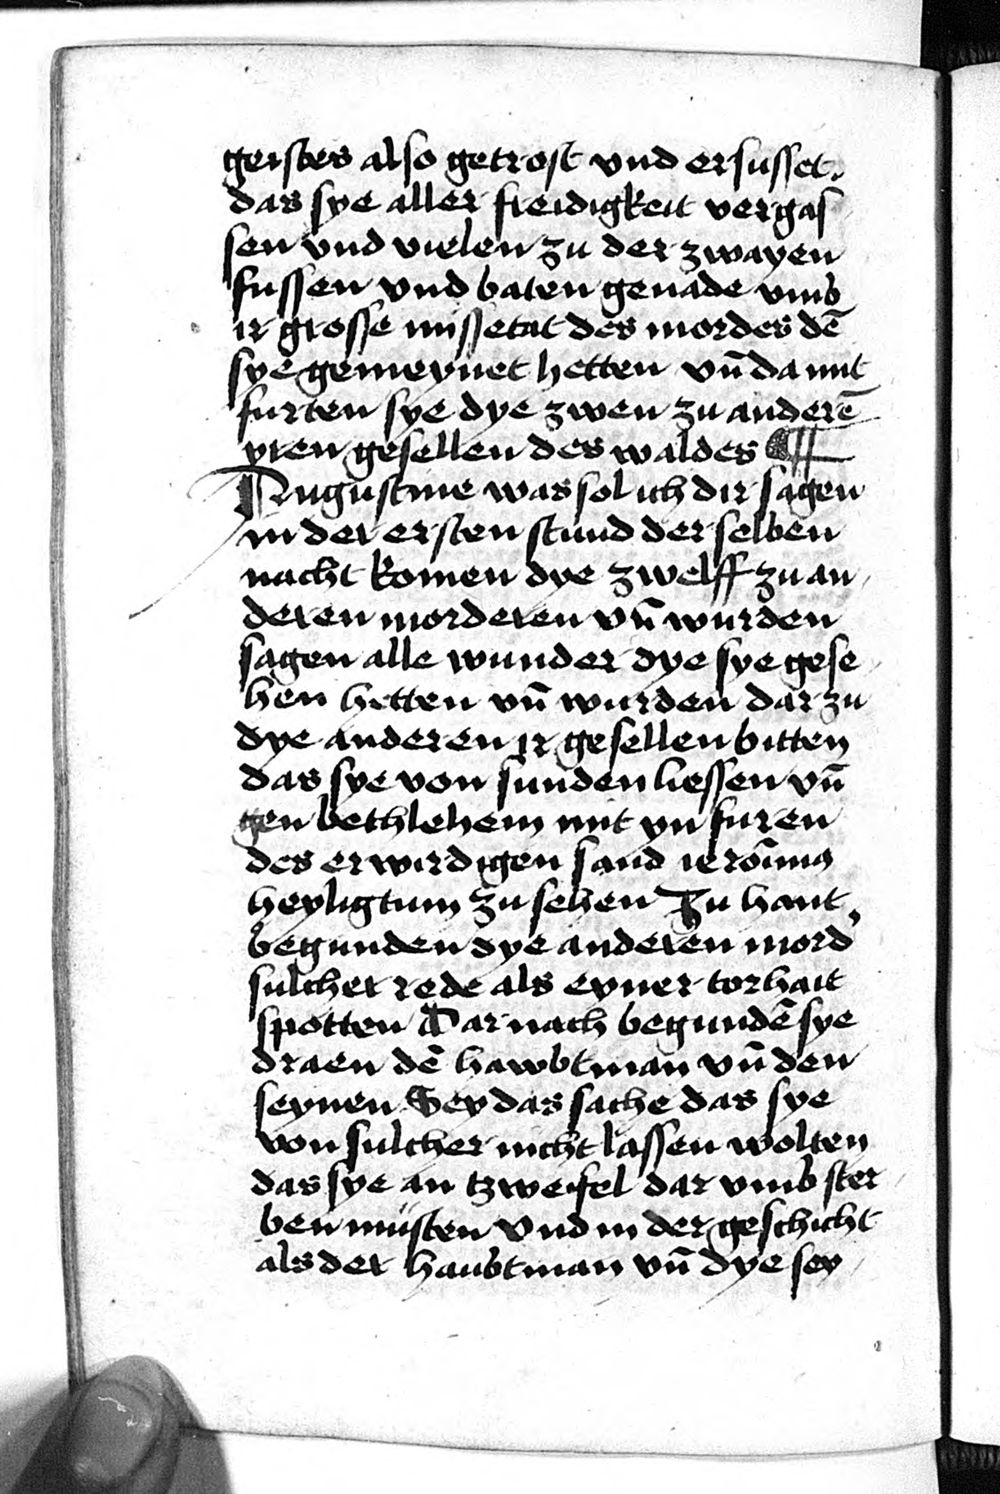 geistes also getrost vnd ersusset.
das sye aller freidigkeit vergas
sen vnd vielen zu der zwayen
fussen vnd baten genade vmb
ir grosse missetat des mordes dē
sye gemeynet hetten vn̄ da mit
furten sye dye zwen zu anderē
yren gesellen des waldes ¶
Augustine was sol ich dir sagen
in der ersten stund der selben
nacht komen dye zwelff zu an
deren morderen vn̄ wurden
sagen alle wunder dye sye gese
hen hetten vn̄ wurden dar zu
dye anderen ir gesellen bitten
das sye von sunden liessen vn̄
gen bethlehem mit yn furen
des erwirdigen sand ieronimꝰ
heyligtum zu sehen Zu hant
begunden dye anderen mord᾽
sulcher rede als eyner torhait
spotten Dar nach begundē sye
draen dē hawbtman vn̄ den
seynen Sey das sache das sye
von sulcher nicht lassen wolten
das sye an tzweifel dar vmb ster
ben müsten Vnd in der geschicht
als der haubtman vn̄ dye sey